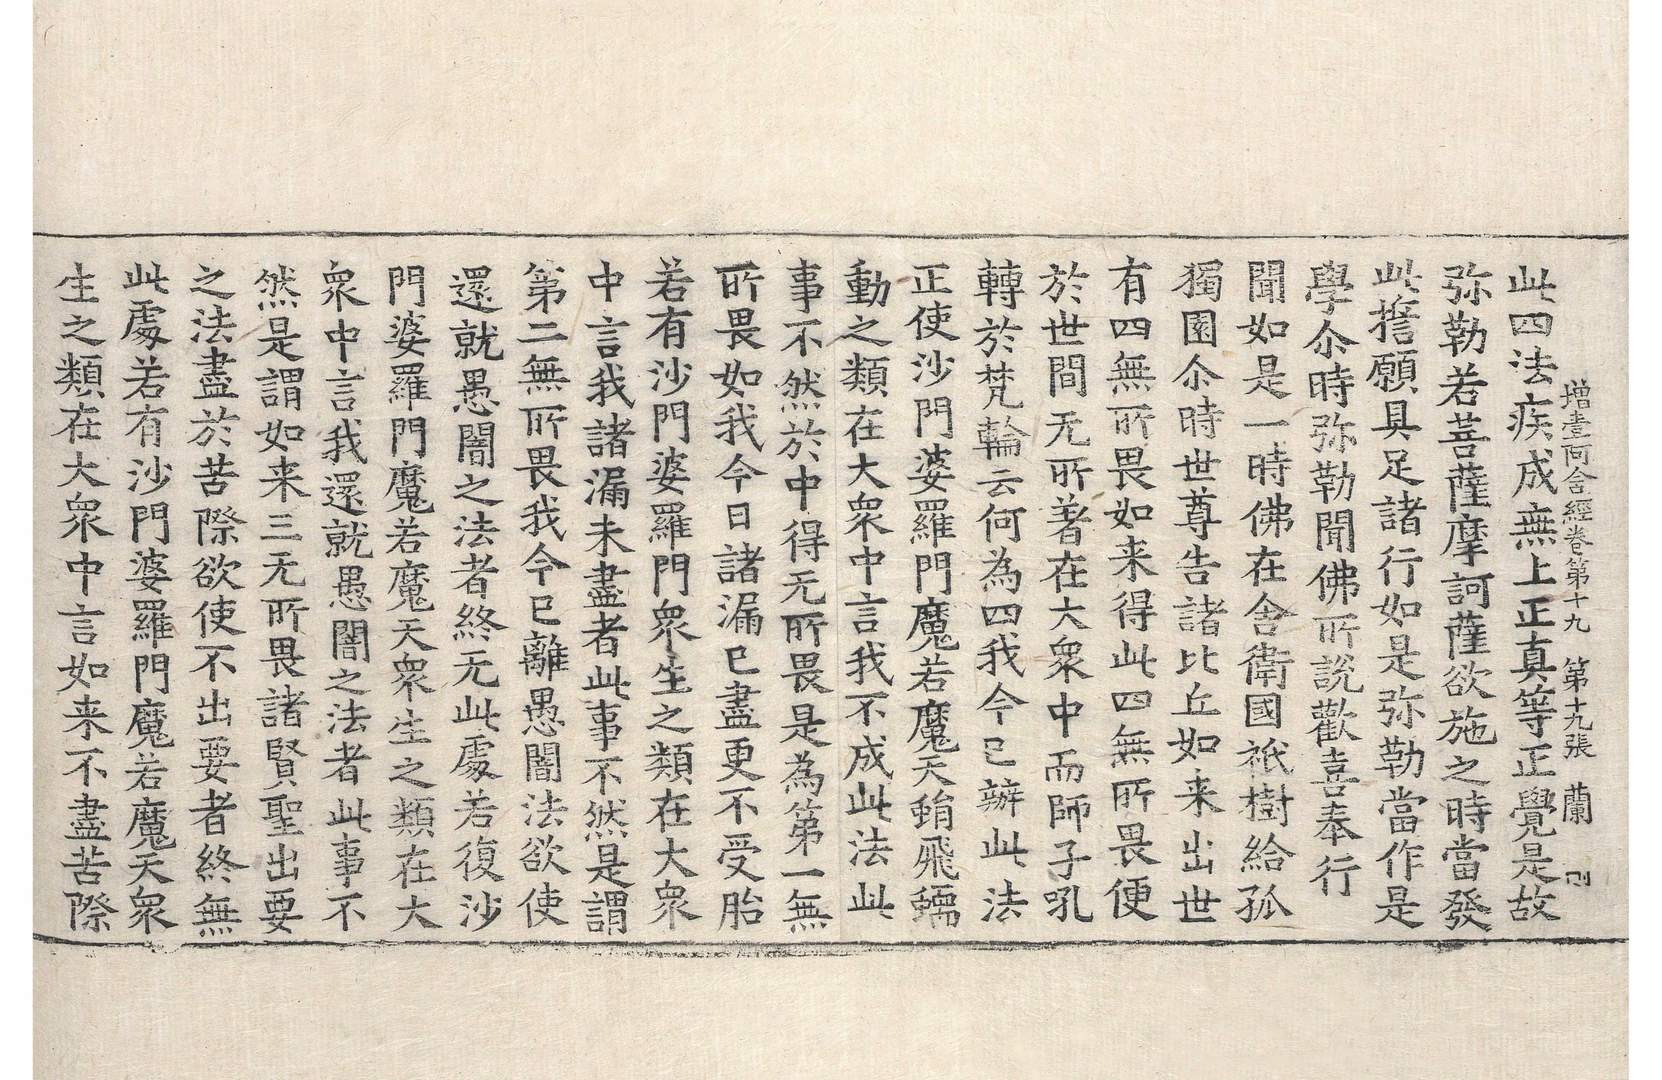 增壹阿含經卷第十九　第十九張　蘭
此四法疾成無上正真等正覺是故
弥勒若菩薩摩訶薩欲施之時當發
此擔願具足諸行如是弥勒當作是
學尒時弥勒聞佛所說歡喜奉行
聞如是一時佛在舍衛國祇樹給孤
獨園尒時世尊告諸比丘如来出世
有四無所畏如来得此四無所畏便
於世間无所著在大衆中而師子吼
轉於梵輪云何為四我今已辦此法
正使沙門婆羅門魔若魔天蜎飛蠕
動之類在大衆中言我不成此法此
事不然於中得无所畏是為第一無
所畏如我今日諸漏已盡更不受胎
若有沙門婆羅門衆生之類在大衆
中言我諸漏未盡者此事不然是謂
第二無所畏我今已離愚闇法欲使
還就愚闇之法者終无此處若復沙
門婆羅門魔若魔天衆生之類在大
衆中言我還就愚闇之法者此事不
然是謂如来三无所畏諸賢聖出要
之法盡於苦際欲使不出要者終無
此處若有沙門婆羅門魔若魔天衆
生之類在大衆中言如来不盡苦際